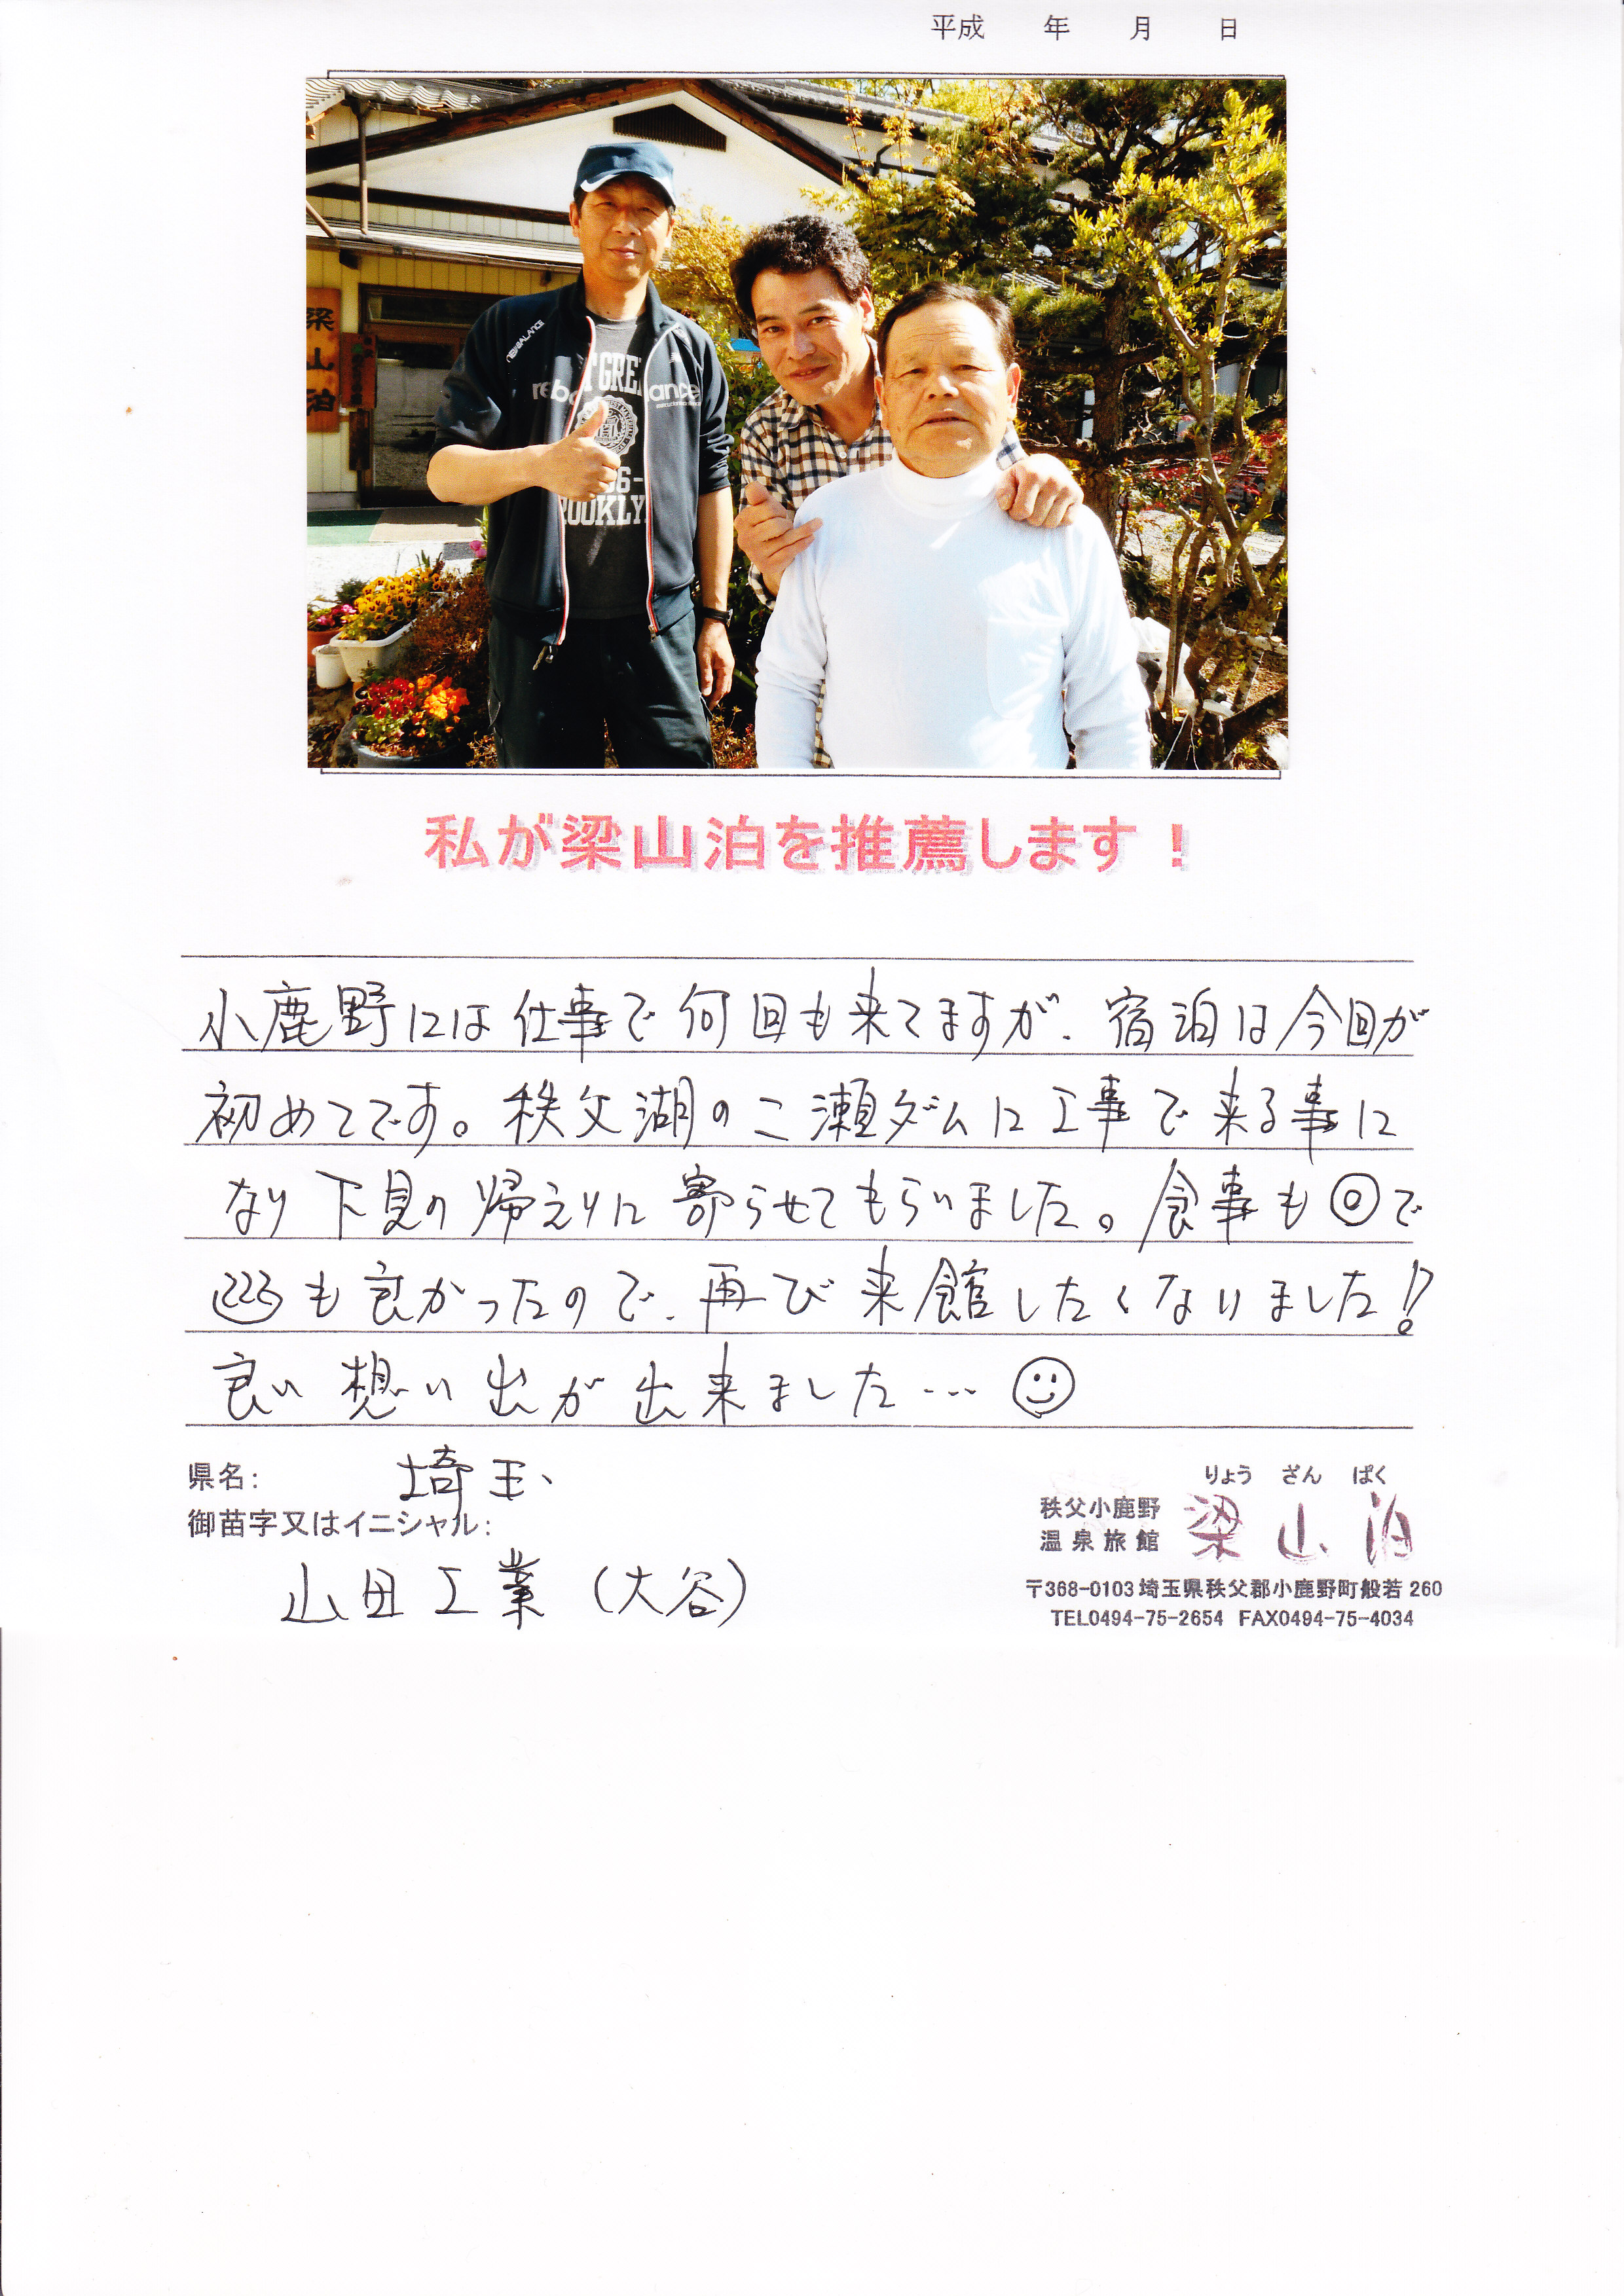 平成 年 月 日
梁山泊
NEW BALANCE
私が梁山泊を推薦します!
小鹿野には仕事で何回も来てますが、宿泊は今回が
初めてです。秩父湖の二瀬ダムに工事で来る事に
なり下見の帰えりに寄らせてもらいました。食事も◎で
♨も良かったので、再び来館したくなりました!!
良い想い出が出来ました…☺
県名: 埼玉
御苗字又はイニシャル:
山田工業(大谷)
りょう ざん ぱく
秩父小鹿野
温泉旅館 梁山泊
〒368-0103 埼玉県秩父郡小鹿野町般若260
TEL0494-75-2654 FAX0494-75-4034